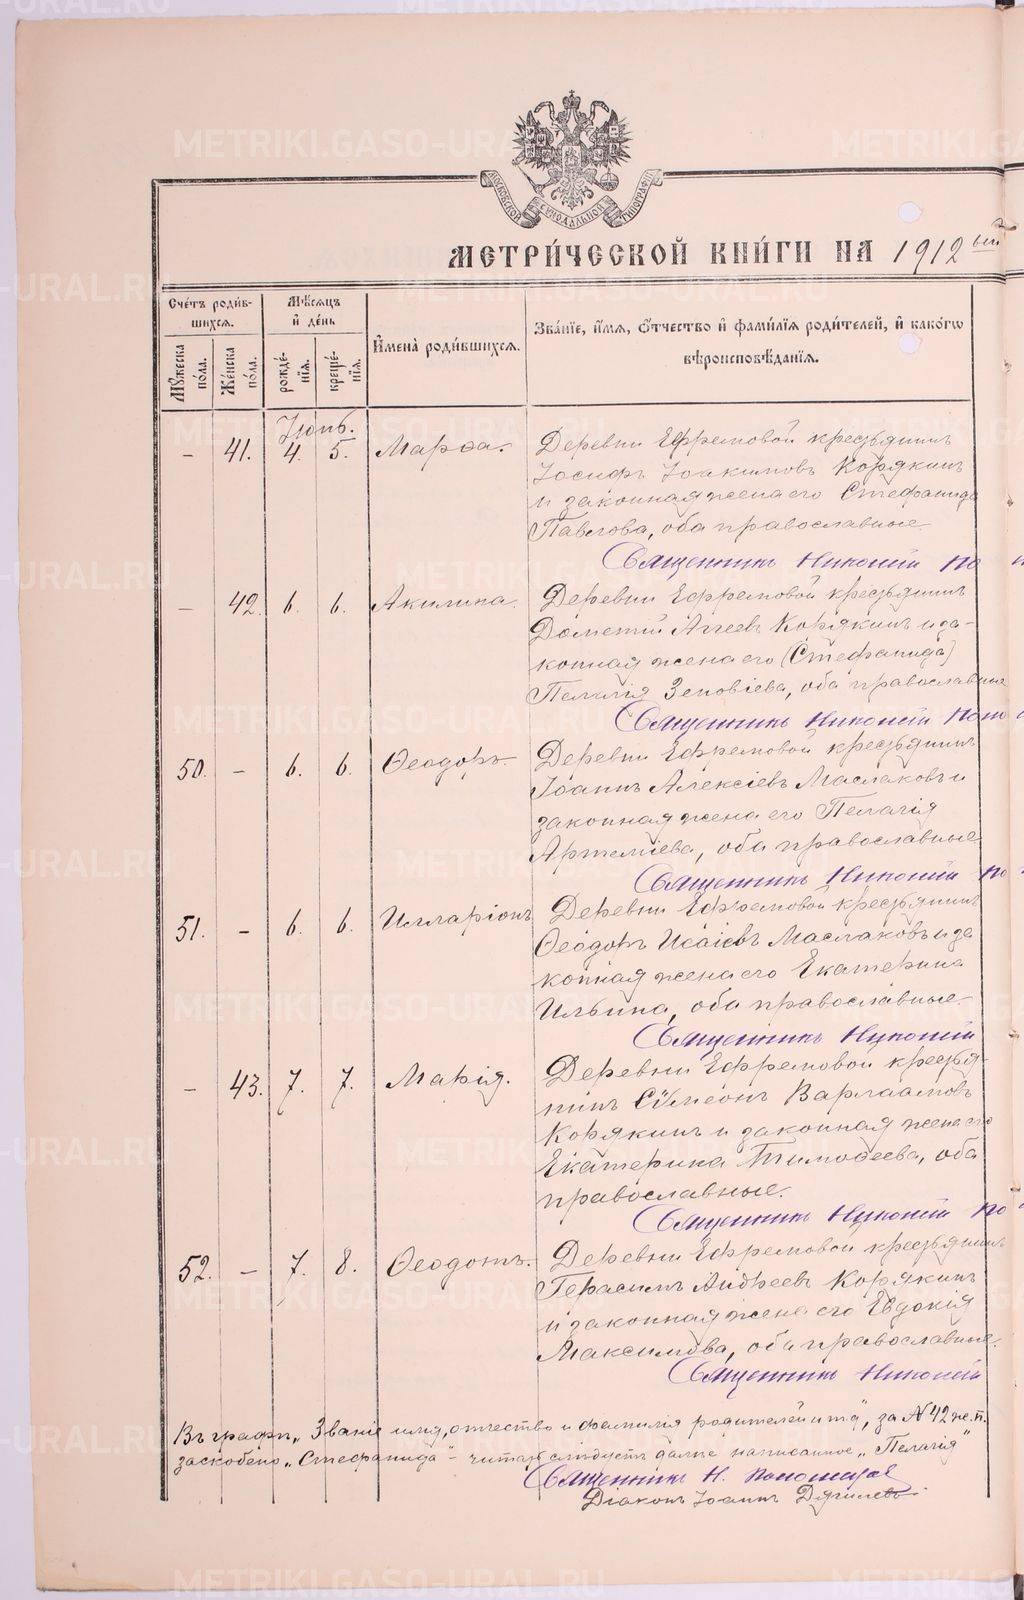 МОСКОВСКОЙ СѴНОДАЛЬНОЙ ТИПОГРАФІИ
МЕТРИ́ЧЕСКОЙ КНИ́ГИ НА 1912ый
Счётъ роди́в-
шихсѧ.
Мꙋ́жеска
по́ла.
Же́нска
по́ла.
Мѣ́сѧцъ
и҆ де́нь
рожде́-
нїѧ.
креще́-
нїѧ.
И҆мена̀ роди́вшихсѧ.
Зва́нїе, и҆́мѧ, ѻ҆́тчество и҆ фами́лїѧ роди́телей, и҆ како́гѡ
вѣроисповѣ́данїѧ.
Іюнь.
– 41. 4. 5. Марѳа. Деревни Ефремовой крестьянинъ
Іосифъ Іоакимовъ Корякинъ
и законная жена его Стефанида
Павлова, оба православные
Священникъ Никоній По
– 42. 6. 6. Акилина. Деревни Ефремовой крестьянинъ
Дометій Аггеевъ Корякинъ и за-
конная жена его (Стефанида)
Пелагія Зеновіева, оба православные
Священникъ Никоній Поно
50. – 6. 6. Ѳеодоръ. Деревни Ефремовой крестьянинъ
Іоаннъ Алексіевъ Маслаковъ и
законная жена его Пелагія
Артеміева, оба православные
Священникъ Никоній По
51. – 6. 6. Илларіонъ Деревни Ефремовой крестьянинъ
Ѳеодоръ Исаіевъ Маслаковъ и за
конная жена его Екатерина
Ильина, оба православные.
Священникъ Никоній
– 43. 7. 7. Марія. Деревни Ефремовой крестья-
нинъ Сѷмеонъ Варлаамовъ
Корякинъ и законная жена его
Екатерина Тимоѳеева, оба
православные.
Священникъ Никоній По
52. – 7. 8. Ѳеодотъ. Деревни Ефремовой крестьянинъ
Герасимъ Андреевъ Корякинъ
и законная жена его Евдокія
Максимова, оба православные.
Священникъ Никоній
Въ графѣ „Званіе имя, отчество и фамилія родителей и тд", за № 42 же. п.
заскобено „Стефанида" – читать слѣдуетъ далѣе написанное „Пелагія"
Священникъ Н. Пономарев
Діаконъ Іоаннъ Дягилевъ.
METRIKI.GASO-URAL.RU